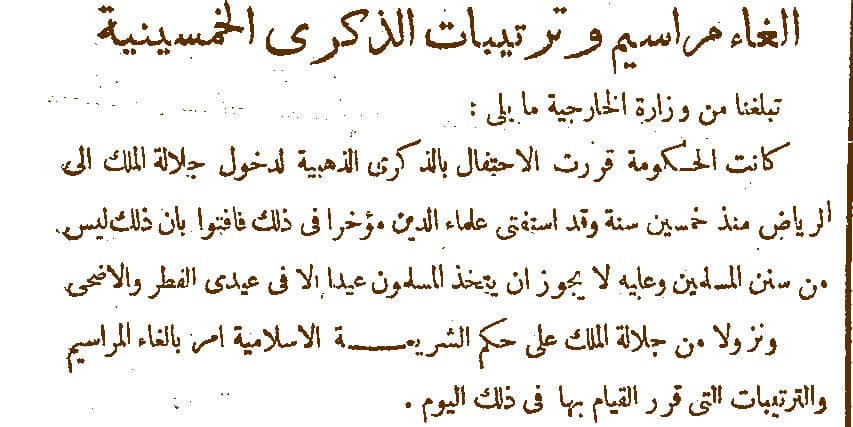 الغاء مراسيم وترتيبات الذكرى الخمسينية
تبلغنا من وزارة الخارجية ما يلى :
كانت الحكومة قررت الاحتفال بالذكرى الذهبية لدخول جلالة الملك الى
الرياض منذ خمسين سنة وقد استفتى علماء الدين مؤخرا فى ذلك فافتوا بان ذلك ليس
من سنن المسلمين وعليه لا يجوز ان يتخذ المسلمون عيدا الا فى عيدى الفطر والاضحى
ونزولا من جلالة الملك على حكم الشريعة الاسلامية امر بالغاء المراسيم
والترتيبات التى قرر القيام بها فى ذلك اليوم .